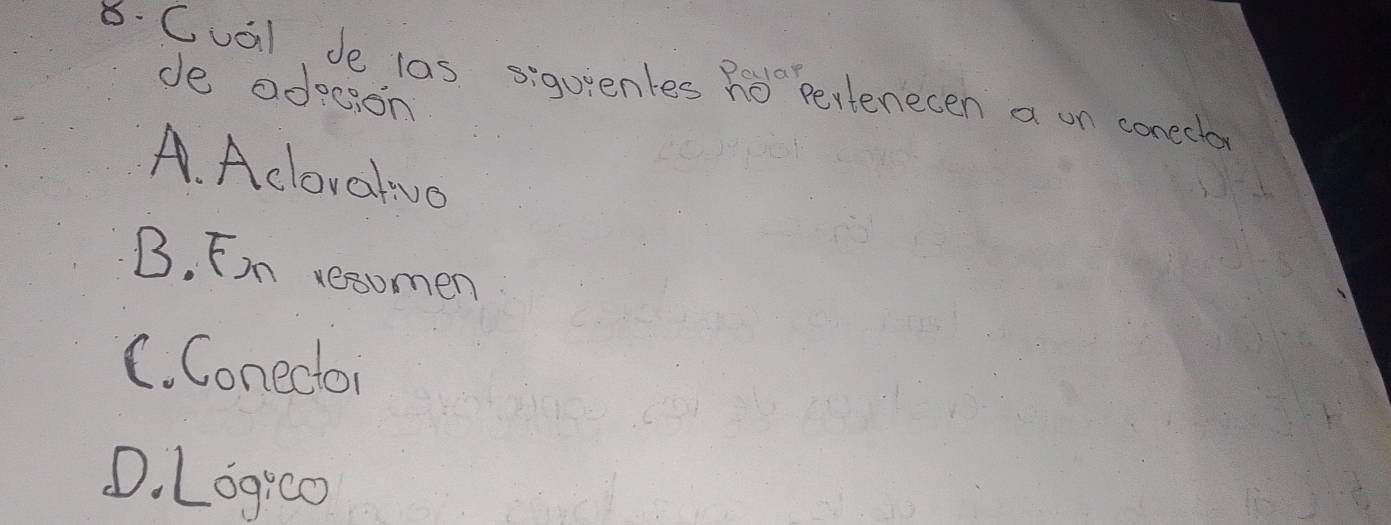 8. Cuál de las siguientes Palar no pertenecen a un conector
de adición
A. Aclarativo
B. En resumen
C. Conector
D. Lógico